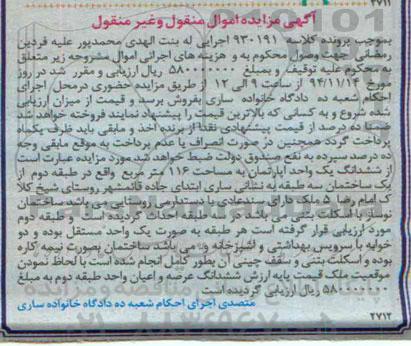 ۲۷۱۱
آگهی مزایده اموال منقول وغیر منقول
بموجب پرونده کلاسه ۹۳۰۱۹۱ اجرایی له بنت الهدی محمدپور علیه فردین
رمضانی جهت وصول محکوم به و هزینه های اجرایی اموال مشروحه زیر متعلق
به محکوم علیه توقیف و بمبلغ ۵۸۰۰۰۰۰۰۰ ریال ارزیابی و مقرر شد در روز
مورخ ۹۴/۱۱/۱۴ از ساعت ۹ الی ۱۲ از طریق مزایده حضوری درمحل اجرای
احکام شعبه ده دادگاه خانواده ساری بفروش برسد و قیمت از میزان ارزیابی
شده شروع و به کسانی که بالاترین قیمت را پیشنهاد نمایند فروخته خواهد شد
ضمنا ده درصد از قیمت پیشنهادی نقدا از برنده اخذ و مابقی باید ظرف یکماه
پرداخت گردد همچنین در صورت انصراف یا عدم پرداخت به موقع مابقی وجه
ده درصد سپرده به نفع صندوق دولت ضبط خواهد شد. مورد مزایده عبارت است
از ششدانگ یک واحد آپارتمان به مساحت ۱۱۶ متر مربع واقع در طبقه دوم از
یک ساختمان سه طبقه به نشانی ساری ابتدای جاده قائمشهر روستای شیخ کلا
ک امام رضا ۵ ملک دارای سندعادی با دستدارمی روستایی می باشد ساختمان
نوساز با اسکلت بتنی می باشد در سه طبقه احداث گردیده است که طبقه دوم
مورد ارزیابی قرار گرفته است هر طبقه به صورت یک واحد مستقل بوده و دو
خوابه با سرویس بهداشتی و آشپزخانه و می باشد ساختمان بصورت نیمه کاره
بوده و اسکلت بتنی و سقف چینی آن بطور کامل انجام شده است با لحاظ نمودن
موقعیت ملک قیمت پایه ارزش ششدانگ عرصه و اعیان واحد طبقه دوم به مبلغ
۵۸۰۰۰۰۰۰۰ ریال ارزیابی گردیده است
متصدی اجرای احکام شعبه ده دادگاه خانواده ساری
۲۷۱۲